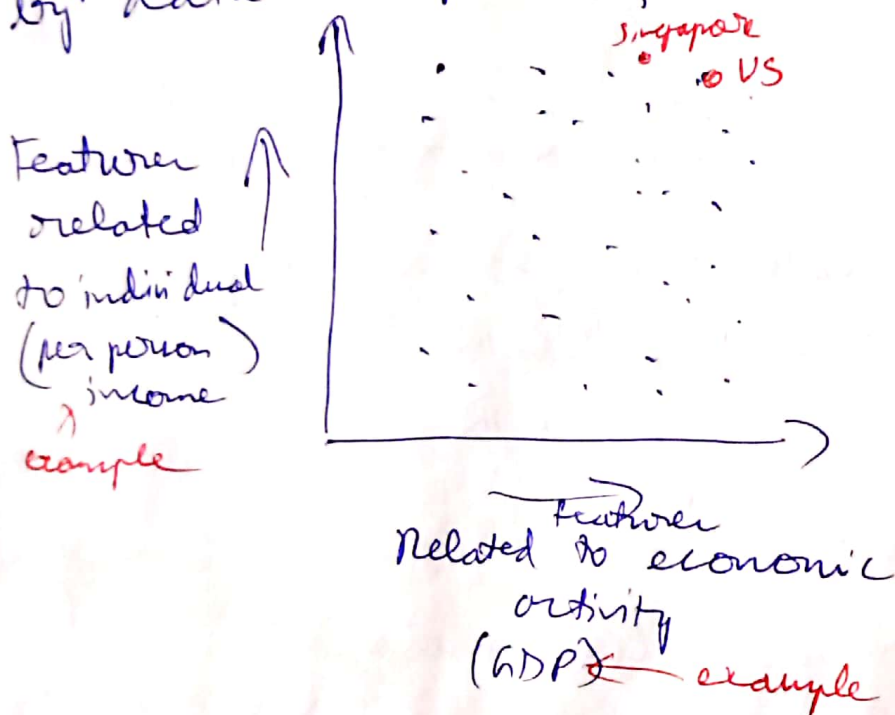 by
Singapore
US
Features
related
to individual
(per person)
income
example
Features
Related to economic
activity
(GDP)
example